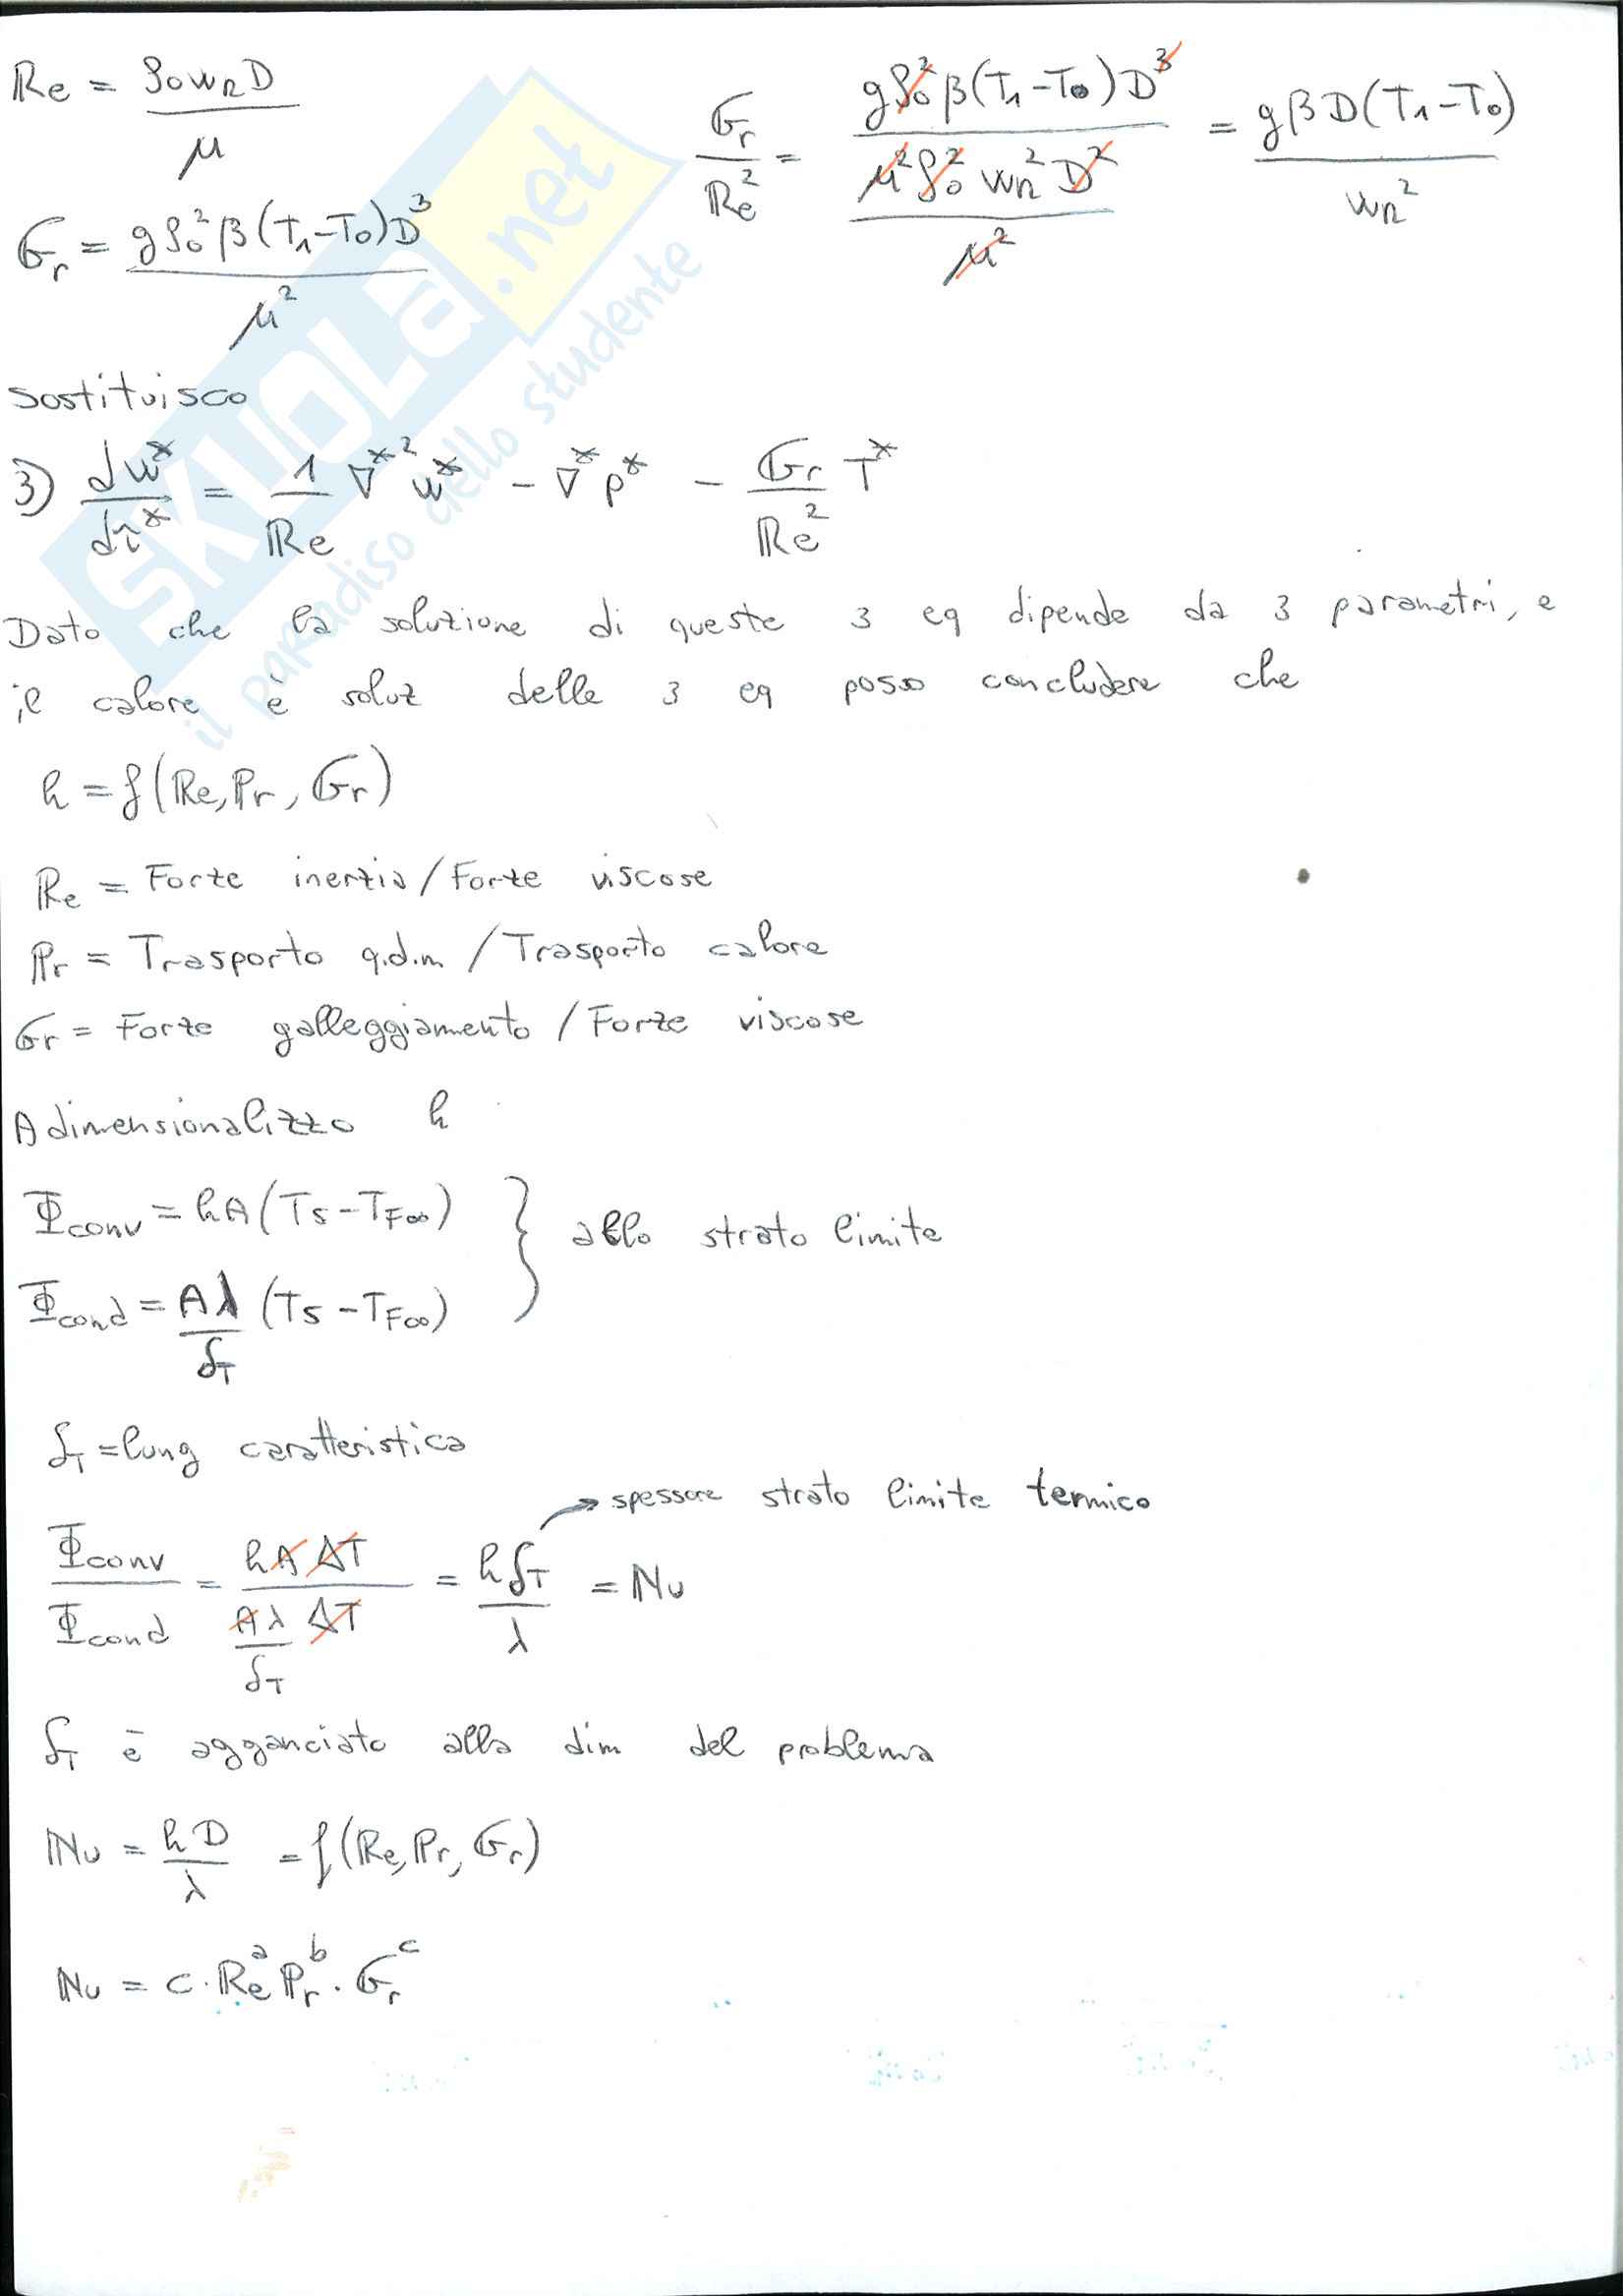 Re = ρ₀w_R D / μ
Gr = gρ₀²β(T₁-T₀)D³ / μ²
Gr / Re² = gρ₀²β(T₁-T₀)D³ / (μ²ρ₀²w_R²D² / μ²) = gβD(T₁-T₀) / w_R²
SKUOLA.net
il paradiso dello studente
sostituisco
3) dw* / dτ* = 1/Re ∇*² w* - ∇*p* - Gr/Re² T*
Dato che la soluzione di queste 3 eq dipende da 3 parametri, e
il calore è soluz delle 3 eq posso concludere che
h = f(Re, Pr, Gr)
Re = Forze inerzia/Forze viscose
Pr = Trasporto q.d.m / Trasporto calore
Gr = Forze galleggiamento / Forze viscose
Adimensionalizzo h
Φconv = hA(Ts-TF∞) } allo strato limite
Φcond = Aλ/δT (Ts-TF∞)
δT = lung caratteristica
→ spessore strato limite termico
Φconv / Φcond = hAΔT / (Aλ/δT ΔT) = hδT / λ = Nu
δT è agganciato alla dim del problema
Nu = hD / λ = f(Re, Pr, Gr)
Nu = c · Re^a Pr^b · Gr^c